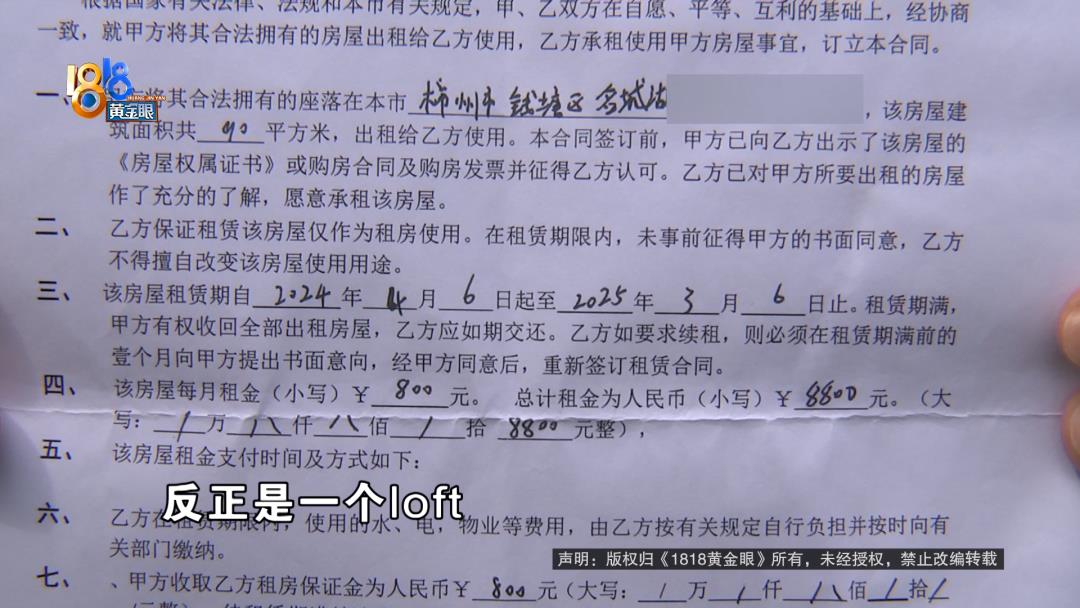 根据国家有关法律、法规和本市有关规定，甲、乙双方在自愿、平等、互利的基础上，经协商
一致，就甲方将其合法拥有的房屋出租给乙方使用，乙方承租使用甲方房屋事宜，订立本合同。
1818
HUANG JIN YAN
黄金眼
一、 将其合法拥有的座落在本市 杭州市 钱塘区 名城 ，该房屋建
筑面积共 90 平方米，出租给乙方使用。本合同签订前，甲方已向乙方出示了该房屋的
《房屋权属证书》或购房合同及购房发票并征得乙方认可。乙方已对甲方所要出租的房屋
作了充分的了解，愿意承租该房屋。
二、 乙方保证租赁该房屋仅作为租房使用。在租赁期限内，未事前征得甲方的书面同意，乙方
不得擅自改变该房屋使用用途。
三、 该房屋租赁期自 2024 年 4 月 6 日起至 2025 年 3 月 6 日止。租赁期满，
甲方有权收回全部出租房屋，乙方应如期交还。乙方如要求续租，则必须在租赁期满前的
壹个月向甲方提出书面意向，经甲方同意后，重新签订租赁合同。
四、 该房屋每月租金（小写）￥ 800 元。 总计租金为人民币（小写）￥ 8800 元。（大
写： / 万 八 仟 八 佰 / 拾 8800 元整），
五、 该房屋租金支付时间及方式如下：
反正是一个loft
六、 乙方在租赁期限内，使用的水、电，物业等费用，由乙方按有关规定自行负担并按时向有
关部门缴纳。
声明：版权归《1818黄金眼》所有，未经授权，禁止改编转载
七、 、甲方收取乙方租房保证金为人民币￥ 800 元（大写： / 万 / 仟 八 佰 / 拾 /